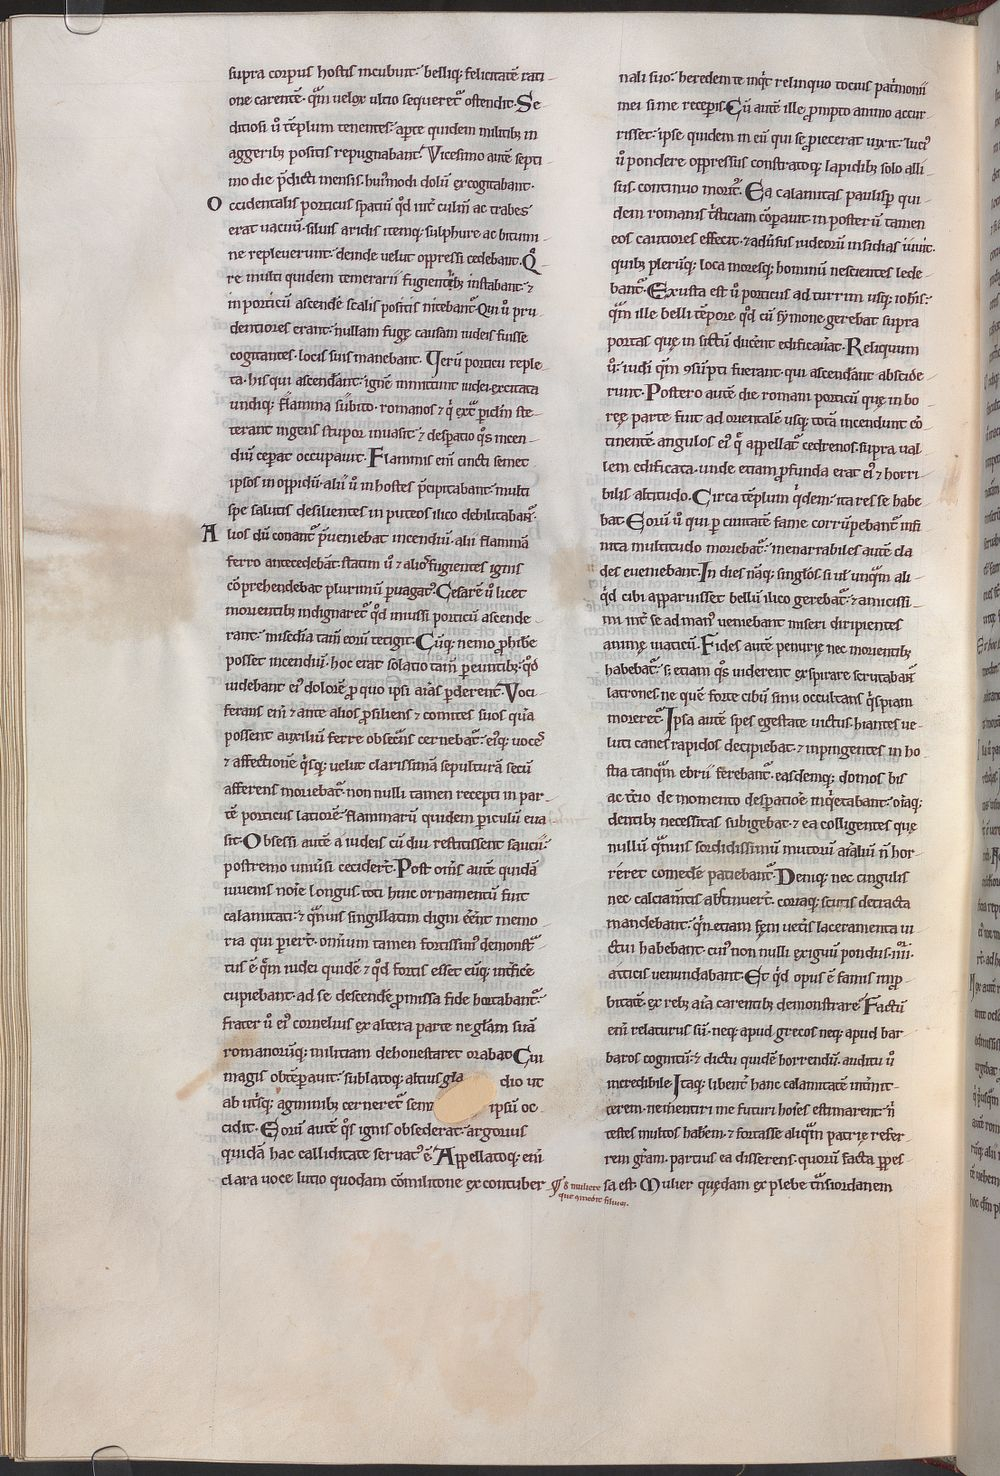 supra corpus hostis incubuit: belliq; felicitatē rati
one carentē. qm̄ uelox ultio sequeret᷑ ostendit. Se
ditiosi ů tēplum tenentes. aꝑte quidem militib; in
aggerib; positis repugnabant. Vicesimo autē septi
mo die p̄dicti mensis. hui᷒modi dolū excogitabant.
Occidentalis porticus spatiū qd̄ int̄ culm̄ ac trabes
erat uacuū. siluis aridis itemq; sulphure ac bitumi
ne repleuerunt. deinde uelut oppressi cedebant. Q
re multi quidem temerarii fugientib; instabant. ⁊
in porticū ascendē scalis positis nitebant᷑. Qui ů pru
dentiores erant. nullam fugę causam iudeis fuisse
cogitantes. locis suis manebant. Verū porticu reple
ta. his qui ascendāt. ignē inmittunt iudei. excitata
undiq; flamma subito. romanos ⁊ q̇ ext᷑ pic̄lm ste
terant ingens stupor inuasit. ⁊ desꝑatio q̇s incen
diū ceꝑat occupauit. Flammis eni cincti semet
ipsos in oppidū. alii ů in hostes p̄cipitabant. multi
spe salutis desilientes in puteos ilico debilitabant᷑.
Alios dū conant᷑ p̄ueniebat incendiū. alii flammā
ferro antecedebāt. statim ů ⁊ alio fugientes ignis
cōprehendebat plurimū ꝑuagat᷒. Cesarē ů licet
morientib; indignaret᷑ qd̄ iniussi porticū ascende
rant. mis̄edia tam̄ eorū tetigit. Cūq; nemo ꝓhibe
posset incendiū. hoc erat solatio tam̄ ꝑeuntib;. qd̄
uidebant ei᷒ dolorē ꝓ quo ipsi aīas ꝑderent. Voci
ferans eni ⁊ ante alios ꝓsiliens ⁊ comites suos q̄a
possent auxiliū ferre obsec̄ns cernebat᷑. ei᷒q; uoces
⁊ affectionē q̇sq; uelut clarissimā sepulturā secū
afferens moriebat᷑. non nulli tamen recepti in par
tē porticus latiorē. flammarū quidem periculū eua
sit. Obsessi autē a iudeis cū diu restitissent saucii:
postremo uniůsi cecidert̄. Post om̄s autē quidā
iuuenis noīe longus. toti huic ornamentū fuit
calamitati. ⁊ qm̄uis singillatim digni eēnt memo
ria qui piert̄. omnium tamen fortissim᷒ demonst᷑
tus ē. qm̄ iudei quidē ⁊ qd̄ fortis esset eūq; int̄ficē
cupiebant. ad se descendē ꝓmissa fide hortabant᷑.
frater ů ei᷒ cornelius ex altera parte ne glam suā
romanorūq; militiam dehonestaret orabat. Cui
magis obtēꝑauit. sublatoq; altius gla dio ut
ab ut̄sq; agminib; cerneret᷑ sem ipsū oc
cidit. Eorū autē q̇s ignis obsederat. artorius
quidā hac calliditate seruat᷒ ē. Appellatoq; eni
clara uoce lucio quodam cōmilitone ex contuber
nali suo. heredem te inq̇t relinquo tocius pat̄monii
mei si me receꝑis. Cū autē ille ꝓmpto animo accur
risset. ipse quidem in eū qui se ꝓiecerat uixit. luci᷒
ů pondere oppressus constratoq; lapidib; solo alli
sus. continuo morit᷑. Ea calamitas paulisꝑ qui
dem romanis t̄sticiam cōꝑauit. in posterū tamen
eos cautiores effecit. ⁊ adůsus iudeorū insidias iuuit.
quib; plerūq; loca moresq; hominū nescientes lede
bant᷑. Exusta est ů porticus ad turrim usq; ioh̄is:
qm̄ ille belli tēpore qd̄ cū symone gerebat supra
portas quę in sistū ducent edificauat. Reliquum
ů. iudei qm̄ osūpti fuerant. qui ascendāt abscide
runt. Postero autē die romani porticū quę in bo
reę parte fuit ad orientalē usq; totā incendunt. cō
tinentē angulos ei᷒ q̇ appellat᷑ cedrenos. supra ual
lem edificata. unde etiam ꝓfunda erat ei᷒ ⁊ horri
bilis altitudo. Circa tēplum q̇dem. ita res se habe
bat. Eorū ů qui ꝑ ciuitatē fame corrūpebant᷑ infi
nita multitudo moriebat᷑. inenarrabiles autē cla
des eueniebant. In dies nāq; singlōs. si ul̄ unq̄m ali
qd̄ cibi apparuisset bellū ilico gerebat᷑. ⁊ amicissi
mi int̄ se ad man᷒ ueniebant miseri diripientes
animę uiaticū. Fides autē penurię nec morientib;
habebat᷑. s; etiam q̇s uiderent exspirare scrutabant᷑
latrones ne quē forte cibū sinu occultans q̇spiam
moreret᷑. Ipsa autē spes egestate uictus. hiantes ue
luti canes rapidos decipiebat. ⁊ inpingentes in ho
stia tanq̄m ebrii ferebant᷑. easdemq; domos bis
ac t̄cio de momento desꝑatiōe inq̇etabant. om̄aq;
dentib; necessitas subigebat. ⁊ ea colligentes quę
nulli᷒ q̄muis sordidissimū mutorū aīaliū n̄ hor
reret comedē patiebant᷑. Deniq; nec cingulis
nec calciam̄tis abstinuert̄. coriaq; scutis detracta
mandebant. q̇n etiam fęni uet̄is laceramenta ui
ctui habebant. cui᷒ non nulli exiguū pondus .iiii.
atticis uenundabant. Et q̇d opus ē famis inꝓ
bitatē ex reb; aīa carentib; demonstrare? Factū
eni relaturus sū. neq; apud grecos neq; apud bar
baros cognitū. ⁊ dictu quidē horrendū. auditu ů
incredibile. Itaq; libent̄ hanc calamitatē int̄mit
terem. ne mentiri me futuri hoīes estimarent. n̄
testes multos habem̄. ⁊ fortasse aliq̄m patrię refer
rem gr̄am. parcius ea disserens. quorū facta ꝑpes
sa est. Mulier quędam ex plebe t̄nsiordanem
¶ De muliere
que comedit filium.